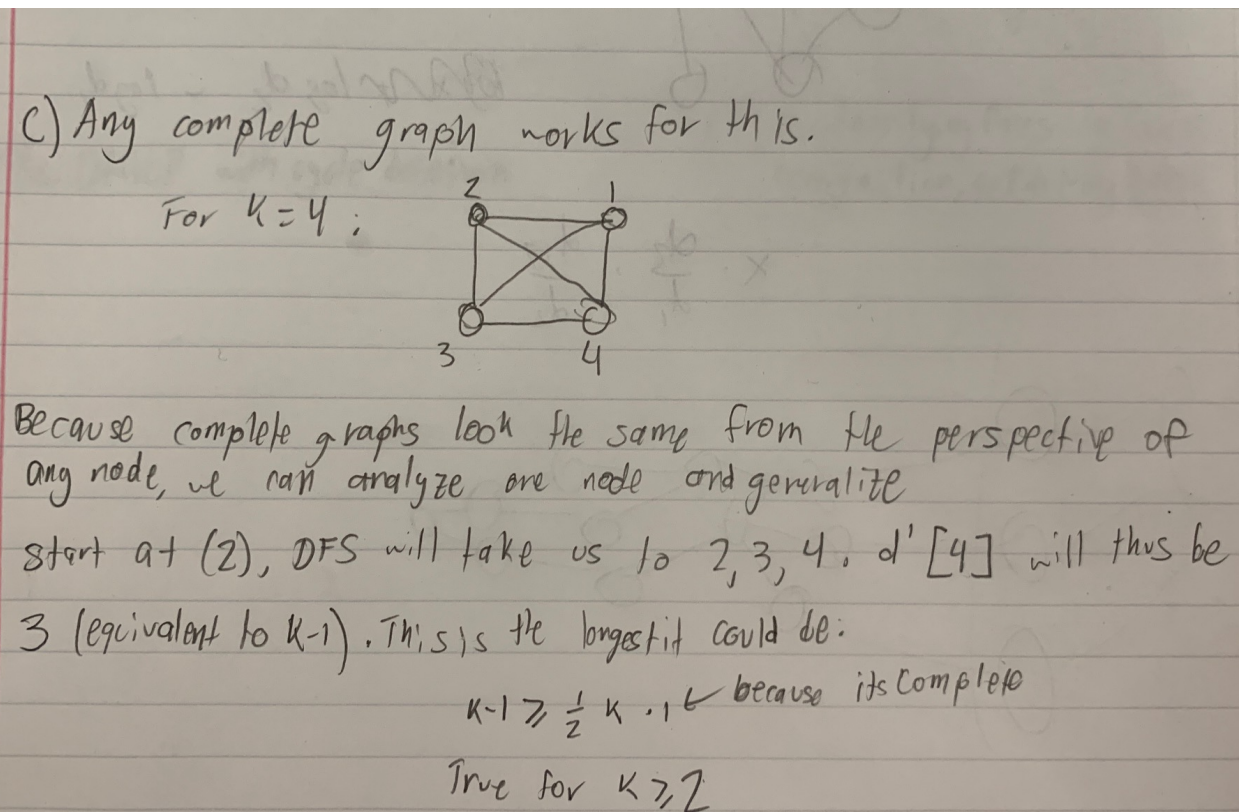 C) Any complete graph works for this.
For K=4:
2 1
3 4
Because complete graphs look the same from the perspective of
any node, we can analyze one node and generalize
start at (2), DFS will take us to 2, 3, 4. d'[4] will thus be
3 (equivalent to K-1). This is the longest it could be:
K-1 ≥ 1/2 K · 1 ← because its complete
True for K ≥ 2